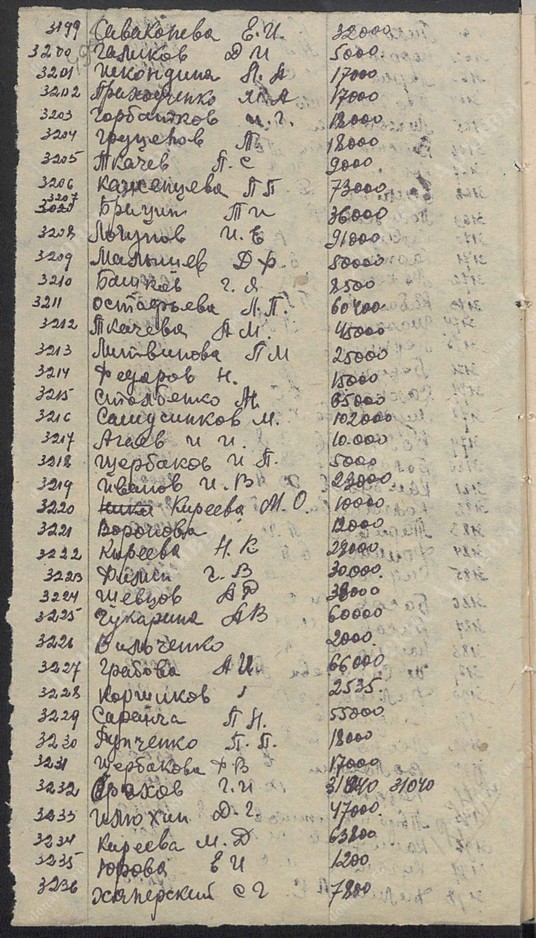 3199 Савакопева Е.И. 32000
3200 Галиков Д И 5000
3201 Шкондина А. А 17000
3202 Приходченко М А 17000
3203 Горбатков И.Г. 18000
3204 Груценов П. 18000
3205 Ткачев П. С 9000
3206 Казменцева П П 73000
3207 Брицин П И 36000
3208 Логунов И. Е 91000
3209 Малышев Д Ф. 50000
3210 Башков Г. Я 8500
3211 Остафьева Л.П. 60400
3212 Ткачева А М. 45000
3213 Литвинова П М 25000
3214 Федоров Н. 15000
3215 Столбенко М. 65000
3216 Самусинков М. 102000
3217 Агаев И И. 10.000
3218 Щербаков И П. 5000
3219 Иванов И. В 23000
3220 Киреева М.О 10000
3221 Воронова 12000
3222 Киреева Н. К 29000
3223 Г. В 30.000
3224 Шевцов А Ф 38000
3225 Чукарина А В 60000
3226 Вильченко 2000
3227 Грабова А И. 66000
3228 Коршиков 2535
3229 Сарайча П Н. 55000
3230 Гупченко П. П. 18000
3231 Щербакова А В 17000
3232 Г. И 31040
3233 Илюхин Д. Г. 47000
3234 Киреева М. Д 63800
3235 Юрова Е И 1200
3236 Хоперский С Г 7800